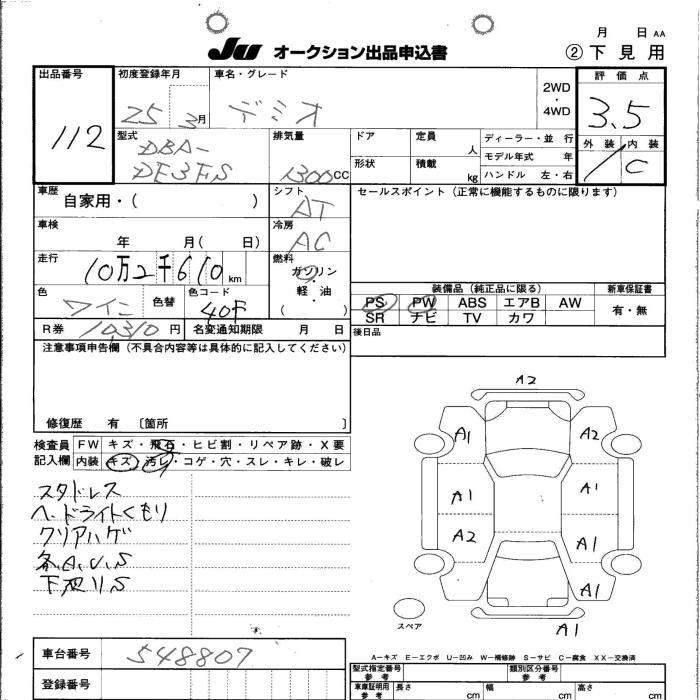 月 日 AA
JU オークション出品申込書 ②下見用
出品番号 112
初度登録年月 25 3月
車名・グレード デミオ
2WD・4WD
評価点 3.5
外装 内装 C
型式 DBA-DE3FS
排気量 1300CC
ドア 定員 人
形状 積載 kg
ディーラー・並行
モデル年式 年
ハンドル 左・右
車歴 自家用・( )
シフト AT
セールスポイント(正常に機能するものに限ります)
車検 年 月( 日)
冷房 AC
走行 10万2千610km
燃料 ガソリン・軽・油 ( )
色 ワイン 色替
色コード 40F
装備品(純正品に限る) 新車保証書
PS PW ABS エアB AW 有・無
SR ナビ TV カワ
R券 10310円 名変通知期限 月 日
後日品
注意事項申告欄(不具合内容等は具体的に記入してください)
修復歴 有 〔箇所 〕
検査員記入欄
FW キズ・飛石・ヒビ割・リペア跡・X要
内装 キズ・汚レ・コゲ・穴・スレ・キレ・破レ
スタドレス
ヘッドライトくもり
クリアハゲ
各A.U.S
A2
A1 A2
A1 A1
A2 A1
A1
A1
スペア
A-キズ E-エクボ U-凹み W-補修跡 S-サビ C-腐食 XX-交換済
車台番号 548807
登録番号
型式指定番号 参考
類別区分番号 参考
車庫証明用 参考
長さ cm 幅 cm 高さ cm